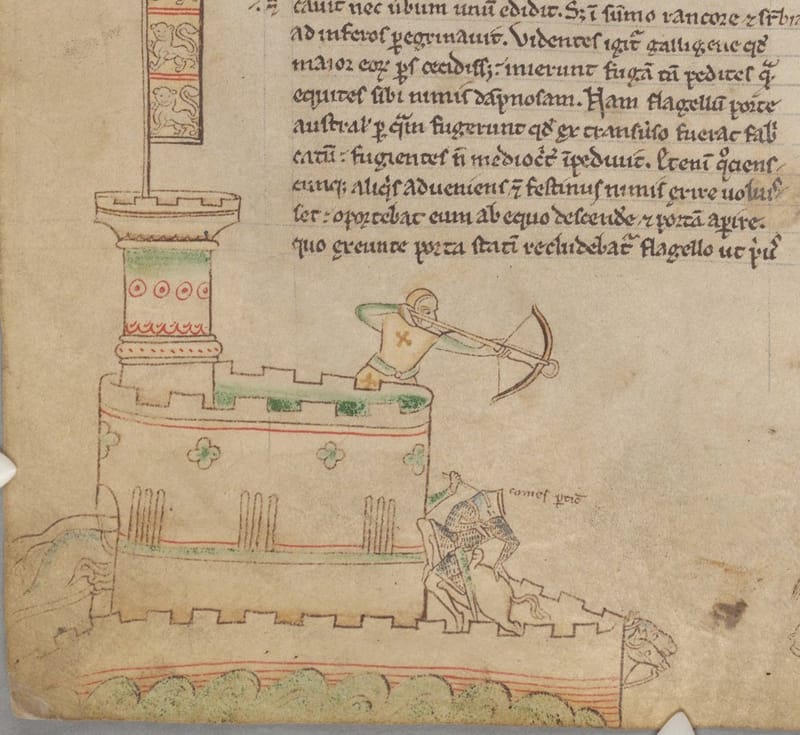 cauit nec ūbum unū edidit. Sȝ ī sūmo rancore ⁊ sr̄bia
ad inferos ꝑegrinauit. Videntes igit̃ galligene qđ
maior eoꝝ ꝑs cecidissȝ: inierunt fugā tā pedites q̃
equites sibi nimis dāpnosam. Nam flagellū porte
austral' ꝑ q̃m fugerunt qđ ex transūso fuerat fab̾
catū: fugientes ñ mediocř īpediuit. Eteni q̊ciens
cunq; aliq̾s adueniens ⁊ festinus nimis exire uoluis
set: oportebat eum ab equo descendře ⁊ portā apire.
quo exeunte porta statī recludebat̃ flagello ut p̾us
comes ꝑtic̄